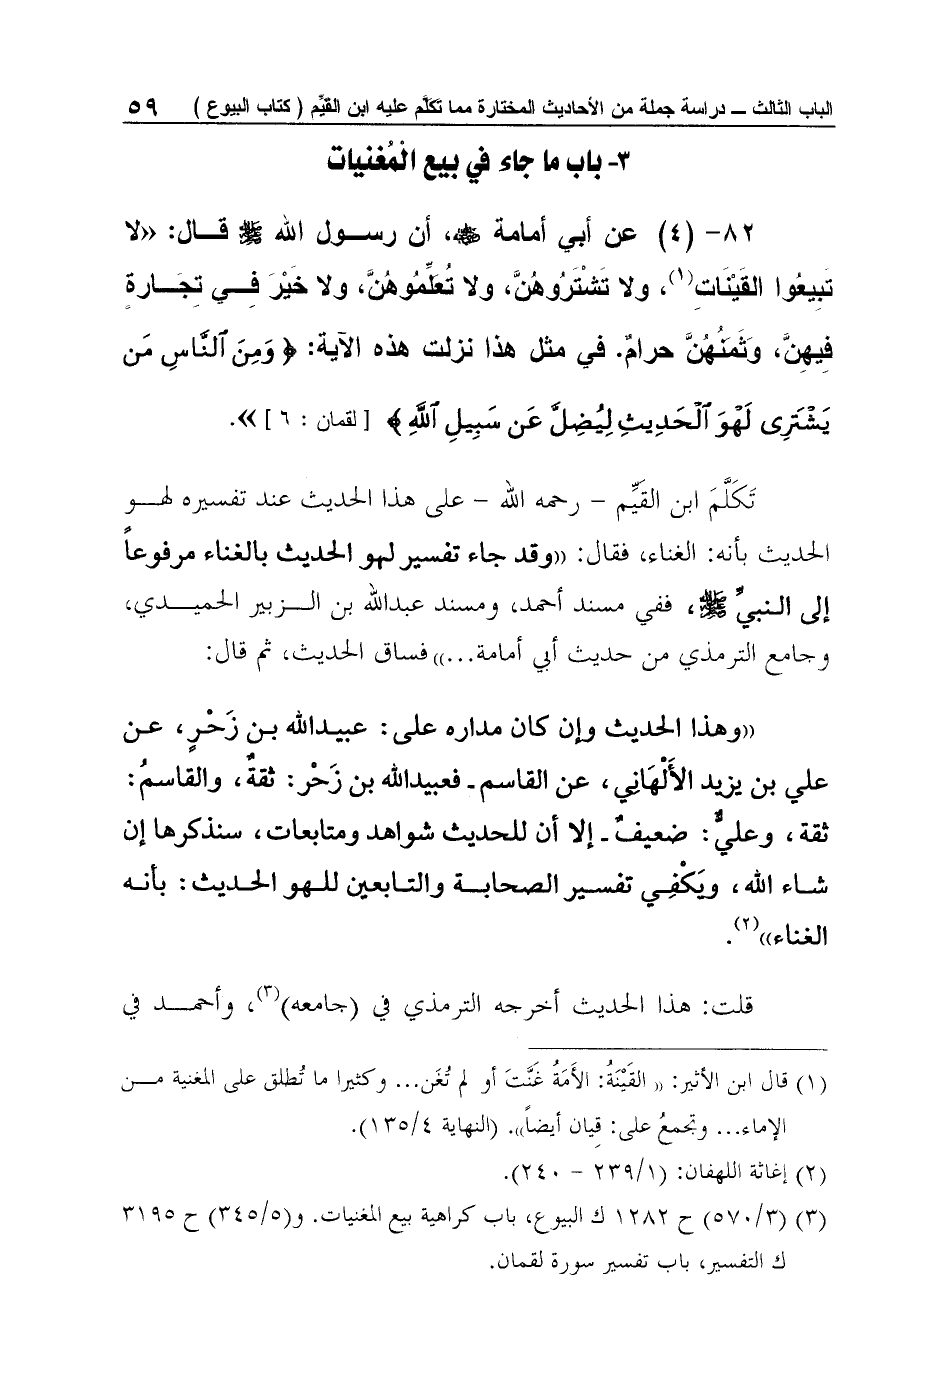 الباب الثالث ــ دراسة جملة من الأحاديث المختارة مما تكلَّم عليه ابن القيِّم ( كتاب البيوع ) ٥٩
٣- باب ما جاء في بيع الْمُغنيات
٨٢- (٤) عن أبي أمامة ﷺ، أن رسول الله ﷺ قال: «لا
تَبيعُوا القَيْنَات(١)، ولا تَشْتَرُوهُنَّ، ولا تُعَلِّمُوهُنَّ، ولا خَيْرَ في تجَارة
فيهِنَّ، وَثَمَنُهُنَّ حرامٌ. في مثل هذا نزلت هذه الآية: ﴿ وَمِنَ ٱلنَّاسِ مَن
يَشْتَرِى لَهْوَ ٱلْحَدِيثِ لِيُضِلَّ عَن سَبِيلِ ٱللَّهِ ﴾ [ لقمان : ٦ ]».
تَكَلَّمَ ابن القَيِّم - رحمه الله - على هذا الحديث عند تفسيره لهو
الحديث بأنه: الغناء، فقال: «وقد جاء تفسير لهو الحديث بالغناء مرفوعاً
إلى النبيِّ ﷺ، ففي مسند أحمد، ومسند عبدالله بن الزبير الحميدي،
وجامع الترمذي من حديث أبي أمامة...» فساق الحديث، ثم قال:
«وهذا الحديث وإن كان مداره على: عبيدالله بن زَحْرٍ، عن
علي بن يزيد الأَلْهَانِي، عن القاسم ـ فعبيدالله بن زَحْر: ثقةٌ، والقاسمُ:
ثقة، وعليٌّ: ضعيفٌ ـ إلا أن للحديث شواهد ومتابعات، سنذكرها إن
شاء الله، ويَكْفِي تفسير الصحابة والتابعين للهو الحديث: بأنه
الغناء»(٢).
قلت: هذا الحديث أخرجه الترمذي في (جامعه)(٣)، وأحمد في
(١) قال ابن الأثير: « القَيْنَةُ: الأَمَةُ غَنَّتَ أو لم تُغَن... وكثيرا ما تُطلق على المغنية من
الإماء... وتجمعُ على: قيان أيضاً». (النهاية ١٣٥/٤).
(٢) إغاثة اللهفان: (٢٣٩/١ - ٢٤٠).
(٣) (٥٧٠/٣) ح ١٢٨٢ ك البيوع، باب كراهية بيع المغنيات. و(٣٤٥/٥) ح ٣١٩٥
ك التفسير، باب تفسير سورة لقمان.